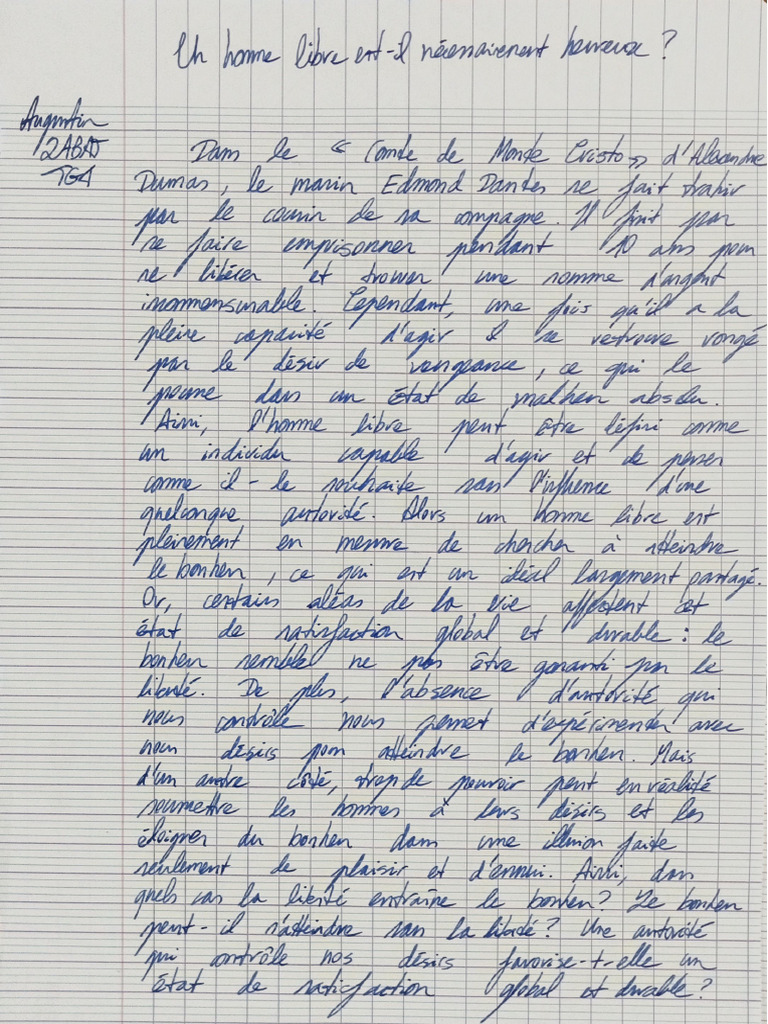 Un homme libre est-il nécessairement heureux ?
Augustin
2ABAJ
TG1
Dans le « Comte de Monte Cristo » d'Alexandre
Dumas, le marin Edmond Dantes se fait trahir
par le cousin de sa compagne. Il finit par
se faire emprisonner pendant 10 ans pour
se libérer et trouver une somme d'argent
incommensurable. Cependant, une fois qu'il a la
pleine capacité d'agir il se restrouve rongé
par le désir de vengeance, ce qui le
pousse dans un état de malheur absolu.
Ainsi, l'homme libre peut être défini comme
un individu capable d'agir et de penser
comme il-le souhaite sans l'influence d'une
quelconque autorité. Alors un homme libre est
pleinement en mesure de chercher à atteindre
le bonheur, ce qui est un idéal largement partagé.
Or, certains aléas de la vie affectent cet
état de satisfaction global et durable : le
bonheur semble ne pas être garanti par le
liberté. De plus, l'absence d'autorité qui
nous contrôle nous permet d'expérimenter avec
nous désirs pour atteindre le bonheur. Mais
d'un autre côté, trop de pouvoir peut en réalité
soumettre les hommes à leurs désirs et les
éloigner du bonheur dans une illusion faite
seulement de plaisir et d'ennui. Ainsi, dans
quels cas la liberté entraîne le bonheur ? Le bonheur
peut-il s'atteindre sans la liberté ? Une autorité
qui contrôle nos désirs favorise-t-elle un
état de satisfaction global et durable ?